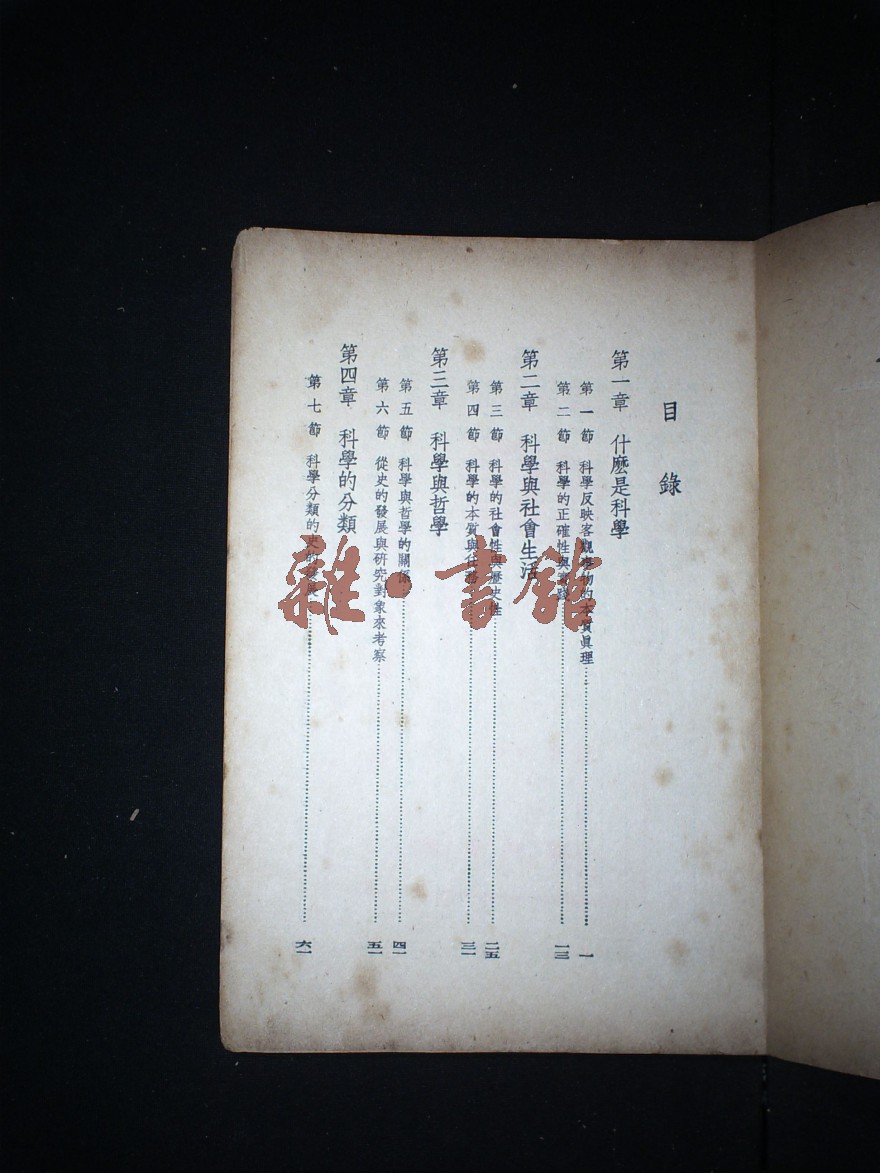 目錄
第一章 什麽是科學
第一節 科學反映客觀事物的本質眞理 一
第二節 科學的正確性與實踐 一三
第二章 科學與社會生活
第三節 科學的社會性與歷史性 二五
第四節 科學的本質與任務 三一
第三章 科學與哲學
第五節 科學與哲學的關係 四一
第六節 從史的發展與研究對象來考察 五一
第四章 科學的分類
第七節 科學分類的史的發展 六一
雜·書館